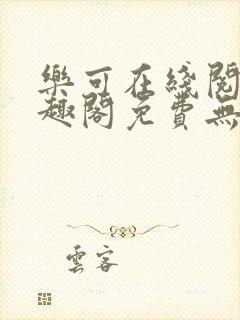 樂可在綫閱
趣閣免費無
雲客